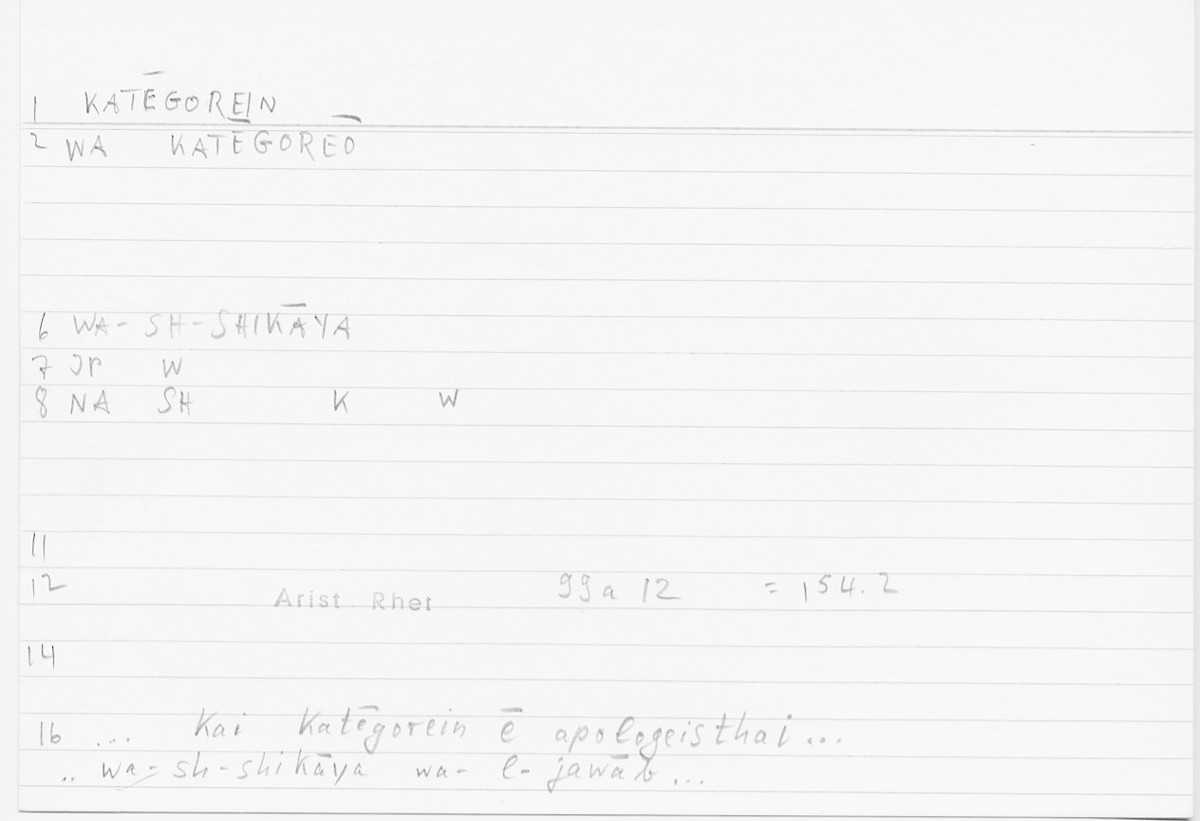 1 KATĒGOREIN
2 WA KATĒGOREŌ
6 WA-SH-SHIKĀYA
7 IP W
8 NA SH K W
11
12 Arist Rhet 99a 12 = 154.2
14
16 ... kai katēgorein ē apologeisthai ...
.. wa-sh-shikāya wa-l-jawāb ...